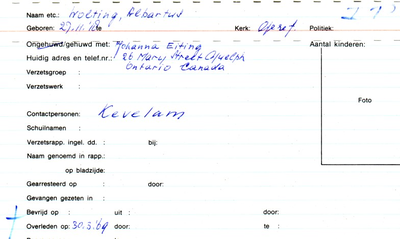 Naam etc.: Nolting, Albartus
Geboren: 27.11.18 Kerk: Geref. Politiek:
Ongehuwd/gehuwd met: Johanna Eiting Aantal kinderen:
Huidig adres en telef.nr.: 26 Mary Street Guelph
Ontario Canada
Verzetsgroep :
Verzetswerk :
Foto
Contactpersonen: Kevelam
Schuilnamen :
Verzetsrapp. ingel. dd. : bij:
Naam genoemd in rapp.:
op bladzijde:
Gearresteerd op : door:
Gevangen gezeten in :
Bevrijd op : uit : door:
Overleden op: 30.3.69 door: te :